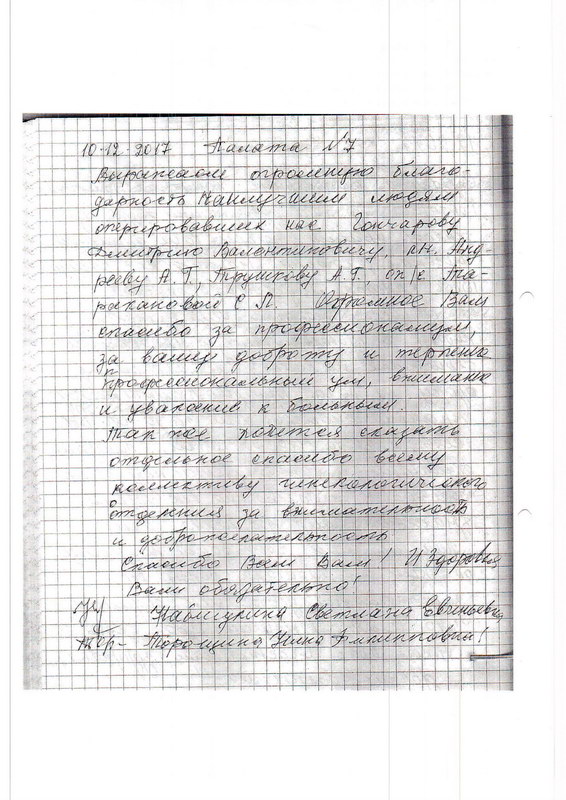 10-12-2017 Палата №7
Выражаем огромную благо-
дарность наилучшим людям
оперировавших нас Гончарову
Дмитрию Валентиновичу, Анд-
рееву А.Г., Трушкову А.Г., оп/с Та-
ракановой С П. Огромное Вам
спасибо за профессионализм,
за вашу доброту и терпение
профессиональный ум, внимание
и уважение к больным.
Так же хочется сказать
отдельное спасибо всему
коллективу гинекологического
отделения за внимательность
и доброжелательность
Спасибо Вам Вам! И Здоровья
Вам обязательно!
Светлана Евгеньевна
Торощина Нина Филипповна!